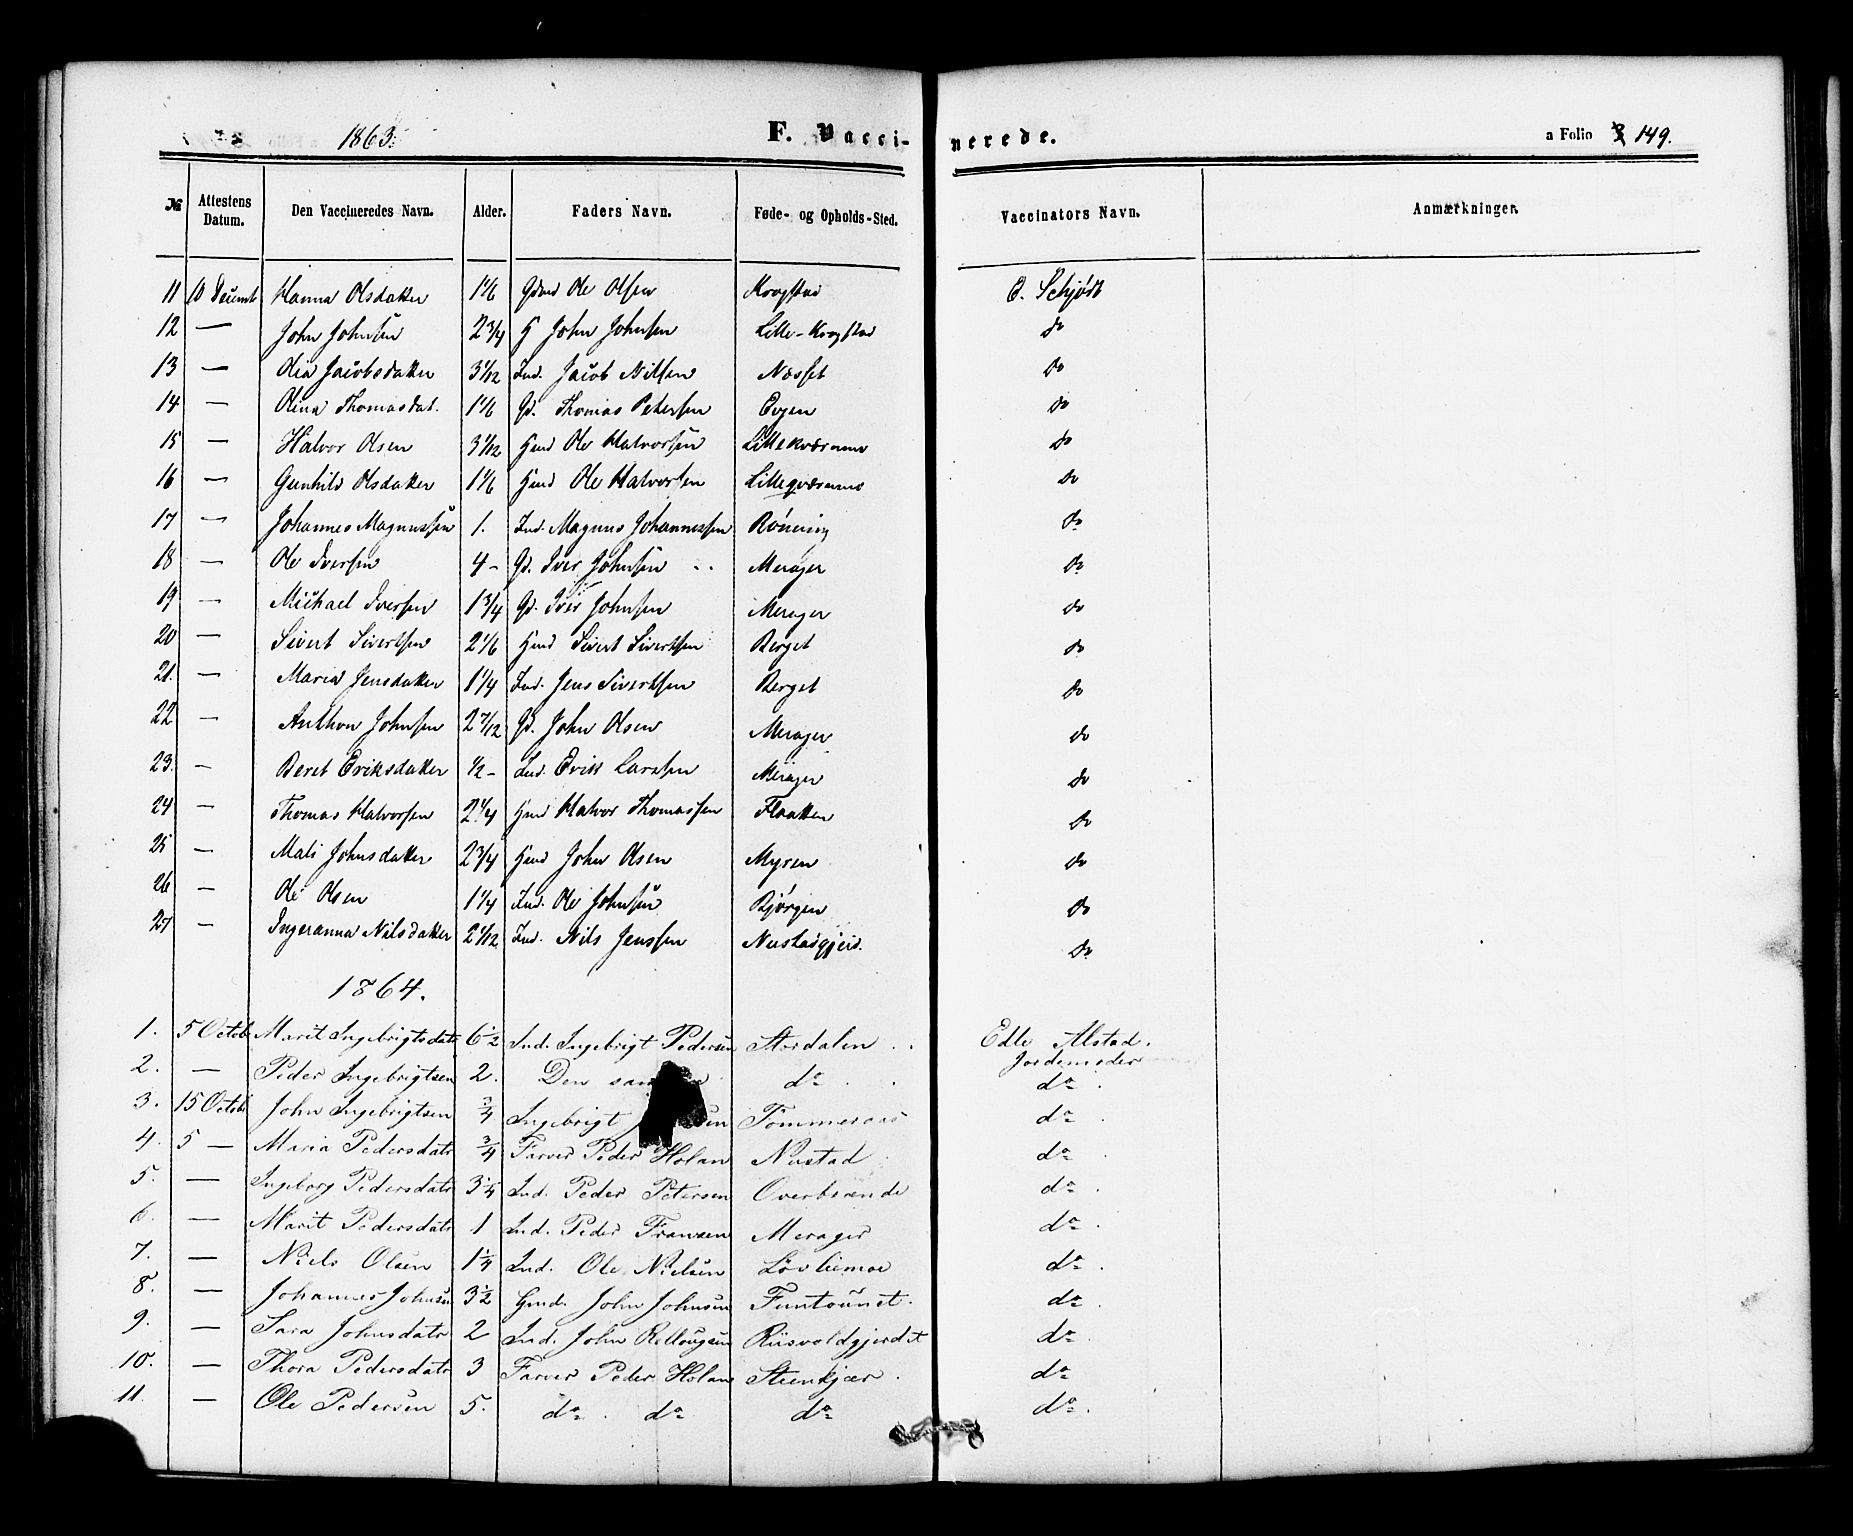 1863.
F. Vacci-
nerede.
a Folio 149.
№ Attestens Datum. Den Vaccineredes Navn. Alder. Faders Navn. Føde- og Opholds-Sted. Vaccinators Navn. Anmærkninger.
11 10 Decembr Hanna Olsdatter 1 1/6 Ole Olsen Krogstad O. Schjødt
12 — John Johnsen 2 3/4 H John Johnsen Lille-Krogstad do
13 — Olia Jacobsdatter 3 1/12 Ind. Jacob Nilsen Næsset do
14 — Olina Thomasdat. 1 1/6 Gd. Thomas Petersen Evjen do
15 — Halvor Olsen 3 1/12 Hmd Ole Halvorsen Lillekværnmo do
16 — Gunhild Olsdatter 1 1/6 Hmd Ole Halvorsen Lilleqværnmo do
17 — Johannes Magnussen 1. Ind. Magnus Johannessen Rönning do
18 — Ole Iversen 4 – Gd. Iver Johnsen Merager do
19 — Michael Iversen 1 3/4 Gd. Iver Johnsen Merager do
20 — Sivert Sivertsen 2 1/6 Hmd Sivert Sivertsen Berget do
21. — Maria Jensdatter 1 1/4 Ind. Jens Sivertsen Berget do
22 — Anthon Johnsen 2 7/12 Gd. John Olsen Merager do
23. — Beret Eriksdatter 1/2 – Ind. Erik Larssen Merager do
24 — Thomas Halvorsen 2 1/4 Hmd Halvor Thomassen Flaatten do
25 — Mali Johnsdatter 2 3/4 Hmd John Olsen Myren do
26 — Ole Olsen 1 1/4 Ind. Ole Johnsen Bjørgen do
27 — Ingeranna Nilsdatter 2 1/12 Ind. Nils Jenssen Nustadgjerd. do
1864.
1. 5 Octob Marit Ingebrigtsdatr 6 1/2 Ind. Ingebrigt Pedersen Stordalen Edle Alstad.
Jordemoder
2. — Peder Ingebrigtsen 2. Den do do
3. 15 Octob John Ingebrigtsen 3/4 Ingebrigt Tommeraas do
4. 5 — Maria Pedersdatr 3/4 Farver Peder Holan Nustad do
5. — Ingeborg Pedersdatr 3 1/4 Ind. Peder Petersen Overbrænde do
6. — Marit Pedersdatr 1 Ind. Peder Fransen Merager do
7. — Niels Olsen 1 1/4 Ind. Ole Nielsen Lövliemoe do
8. — Johannes Johnsen 3 1/2 Gmd. John Johnsen Funtaunet. do
9. — Sara Johnsdatr 2 Ind. John Riisvoldgjerdet do
10. — Thora Pedersdatr 3 Farver Peder Holan Steenkjær do
11. — Ole Pedersen 5. do do do do